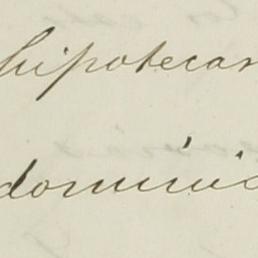 hipotecar
dominio